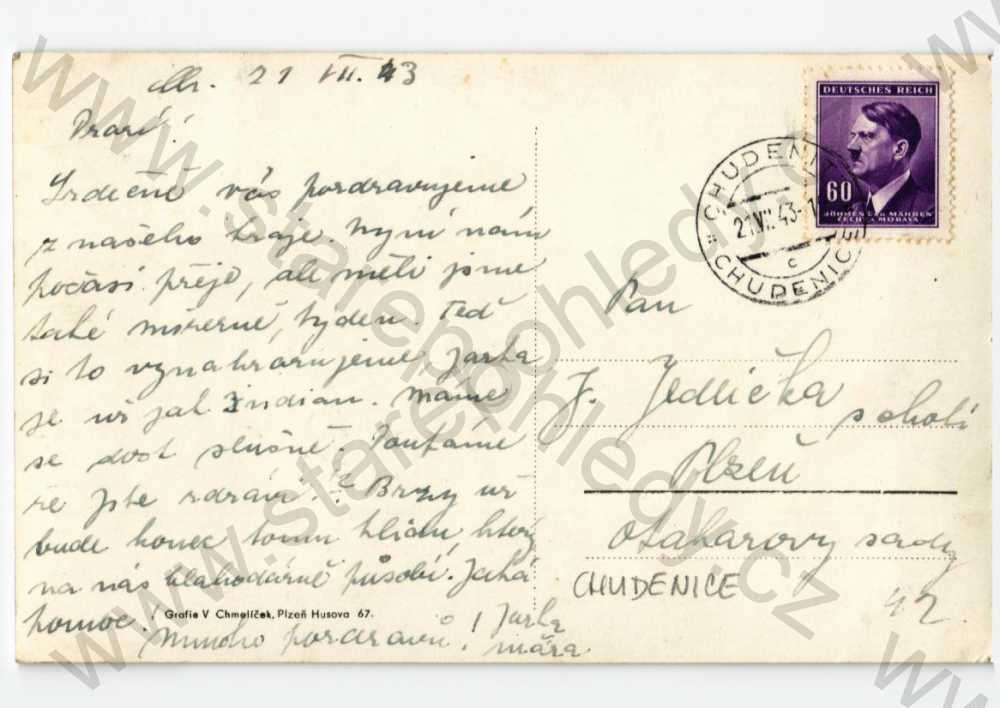 Chr. 21 VII. 43
Drazí!
Srdečně vás pozdravujeme
z našeho kraje. Nyní nám
počasí přeje, ale měli jsme
také mizerně, týden. Teď
si to vynahrazujeme. Jarka
je už jak Indian. Máme
se dost slušně. Doufáme
že jste zdrávi!? Brzy už
bude konec tomu klidu, který
na nás blahodárně působí. Jaká
pomoc!
Mnoho pozdravů! Jarka
Mářa
Grafie V Chmelíček, Plzeň Husova 67.
DEUTSCHES REICH
60
BÖHMEN UND MÄHREN
ČECHY A MORAVA
CHUDENICE
21.VII.43-1
c
CHUDENICE
Pan
J. Jedlička
s chotí
Plzeň
Otakarovy sady
42
CHUDENICE
www.starepohledy.cz
www.starepohledy.cz